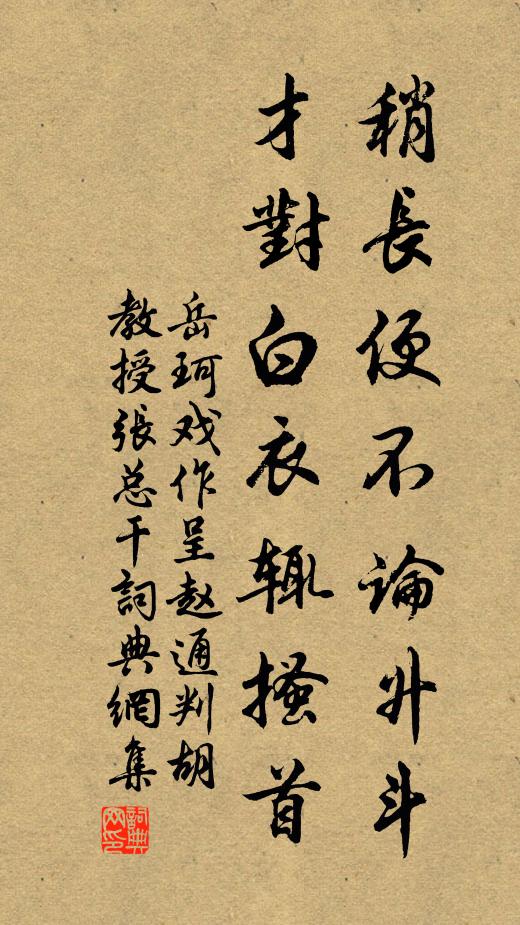 稍長便不論升斗
才對白衣輒搔首
岳珂戏作呈赵通判胡
教授張总干詞典網集
詞典
网印